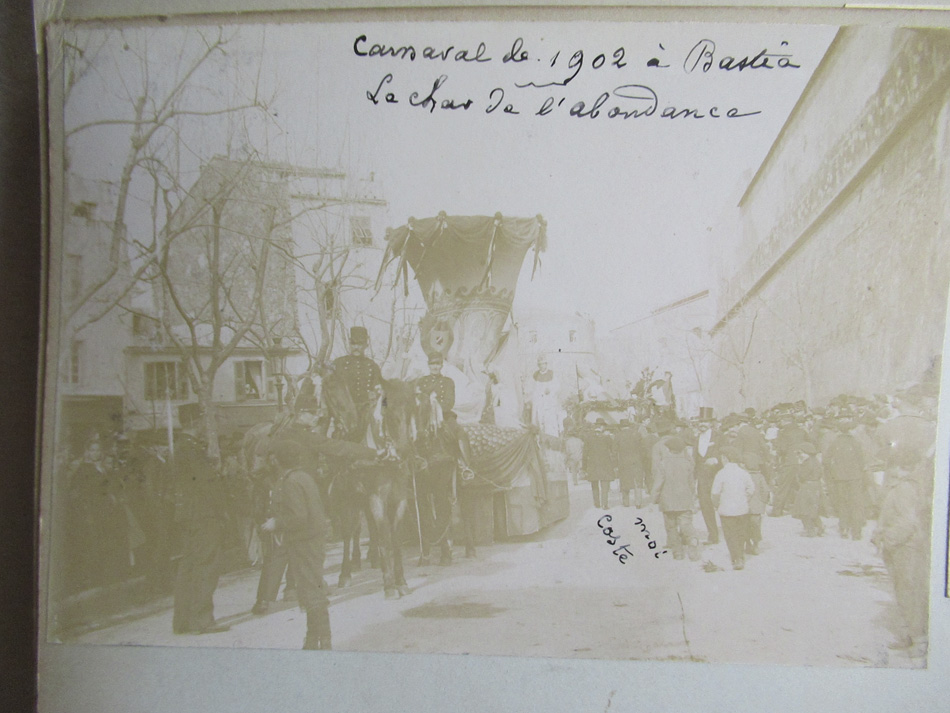 Carnaval de 1902 à Bastia
Le char de l'abondance
Coste
moi